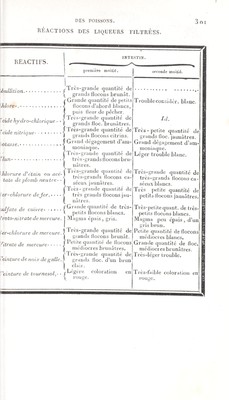 DES POISSONS. 301
RÉACTIONS DES LIQUEURS FILTRÉES.
RÉACTIFS.
INTESTIN.
première moitié. seconde moitié.
Très-grande quantité de
grands flocons brunât.
Grande quantité de petits
flocons d'abord blancs,
puis fleur de pêcher.
Trouble considér. blanc.
Très-grande quantité de
grands flocons brunâtres.
Id.
Très-grande quantité de
grands flocons citrins.
Très-petite quantité de
grands floc. jaunâtres.
Grand dégagement d'am-
moniaque.
Grand dégagement d'am-
moniaque.
Très-grande quantité de
très-grands flocons bru-
nâtres.
Léger trouble blanc.
Très-grande quantité de
très-grands flocons ca-
séeux jaunâtres.
Très-grande quantité de
très-grands flocons ca-
séeux blancs.
Très-grande quantité de
très grands flocons jau-
nâtres.
Très petite quantité de
petits flocons jaunâtres.
sulfate de cuivre
Grande quantité de très-
petits flocons blancs.
Très-petite quant. de très-
petits flocons blancs.
proto-nitrate de mercure.
Magma épais, gris.
Magma peu épais, d'un
gris brun.
Très-grande quantité de
grands flocons brunât.
Petite quantité de flocons
médiocres blancs.
Petite quantité de flocons
médiocres brunâtres.
Grande quantité de floc.
médiocres brunâtres.
teinture de noix de galle.
Très-grande quantité de
grands floc. d'un brun
clair.
Très-léger trouble.
teinture de tournesol
Légère coloration en
rouge.
Très-faible coloration en
rouge.